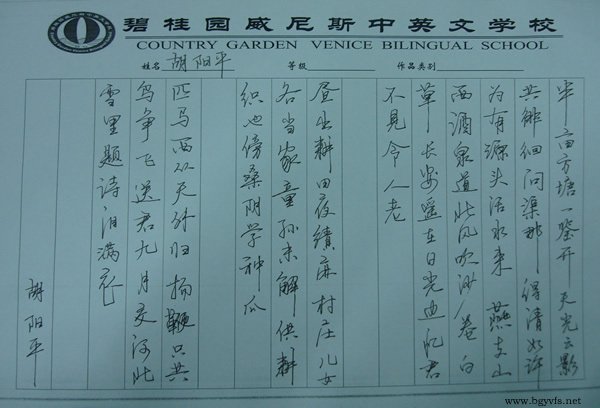 碧桂园威尼斯中英文学校
COUNTRY GARDEN VENICE BILINGUAL SCHOOL
姓名 胡阳平 等级 作品类别
半亩方塘一鉴开 天光云影
共徘徊问渠那得清如许
为有源头活水来 燕支山
西酒泉道北风吹沙卷白
草长安遥在日光边忆君
不见令人老
昼出耕田夜绩麻村庄儿女
各当家童孙未解供耕
织也傍桑阴学种瓜
匹马西从天外归扬鞭只共
鸟争飞送君九月交河北
雪里题诗泪满衣
胡阳平
www.bgyvfs.net